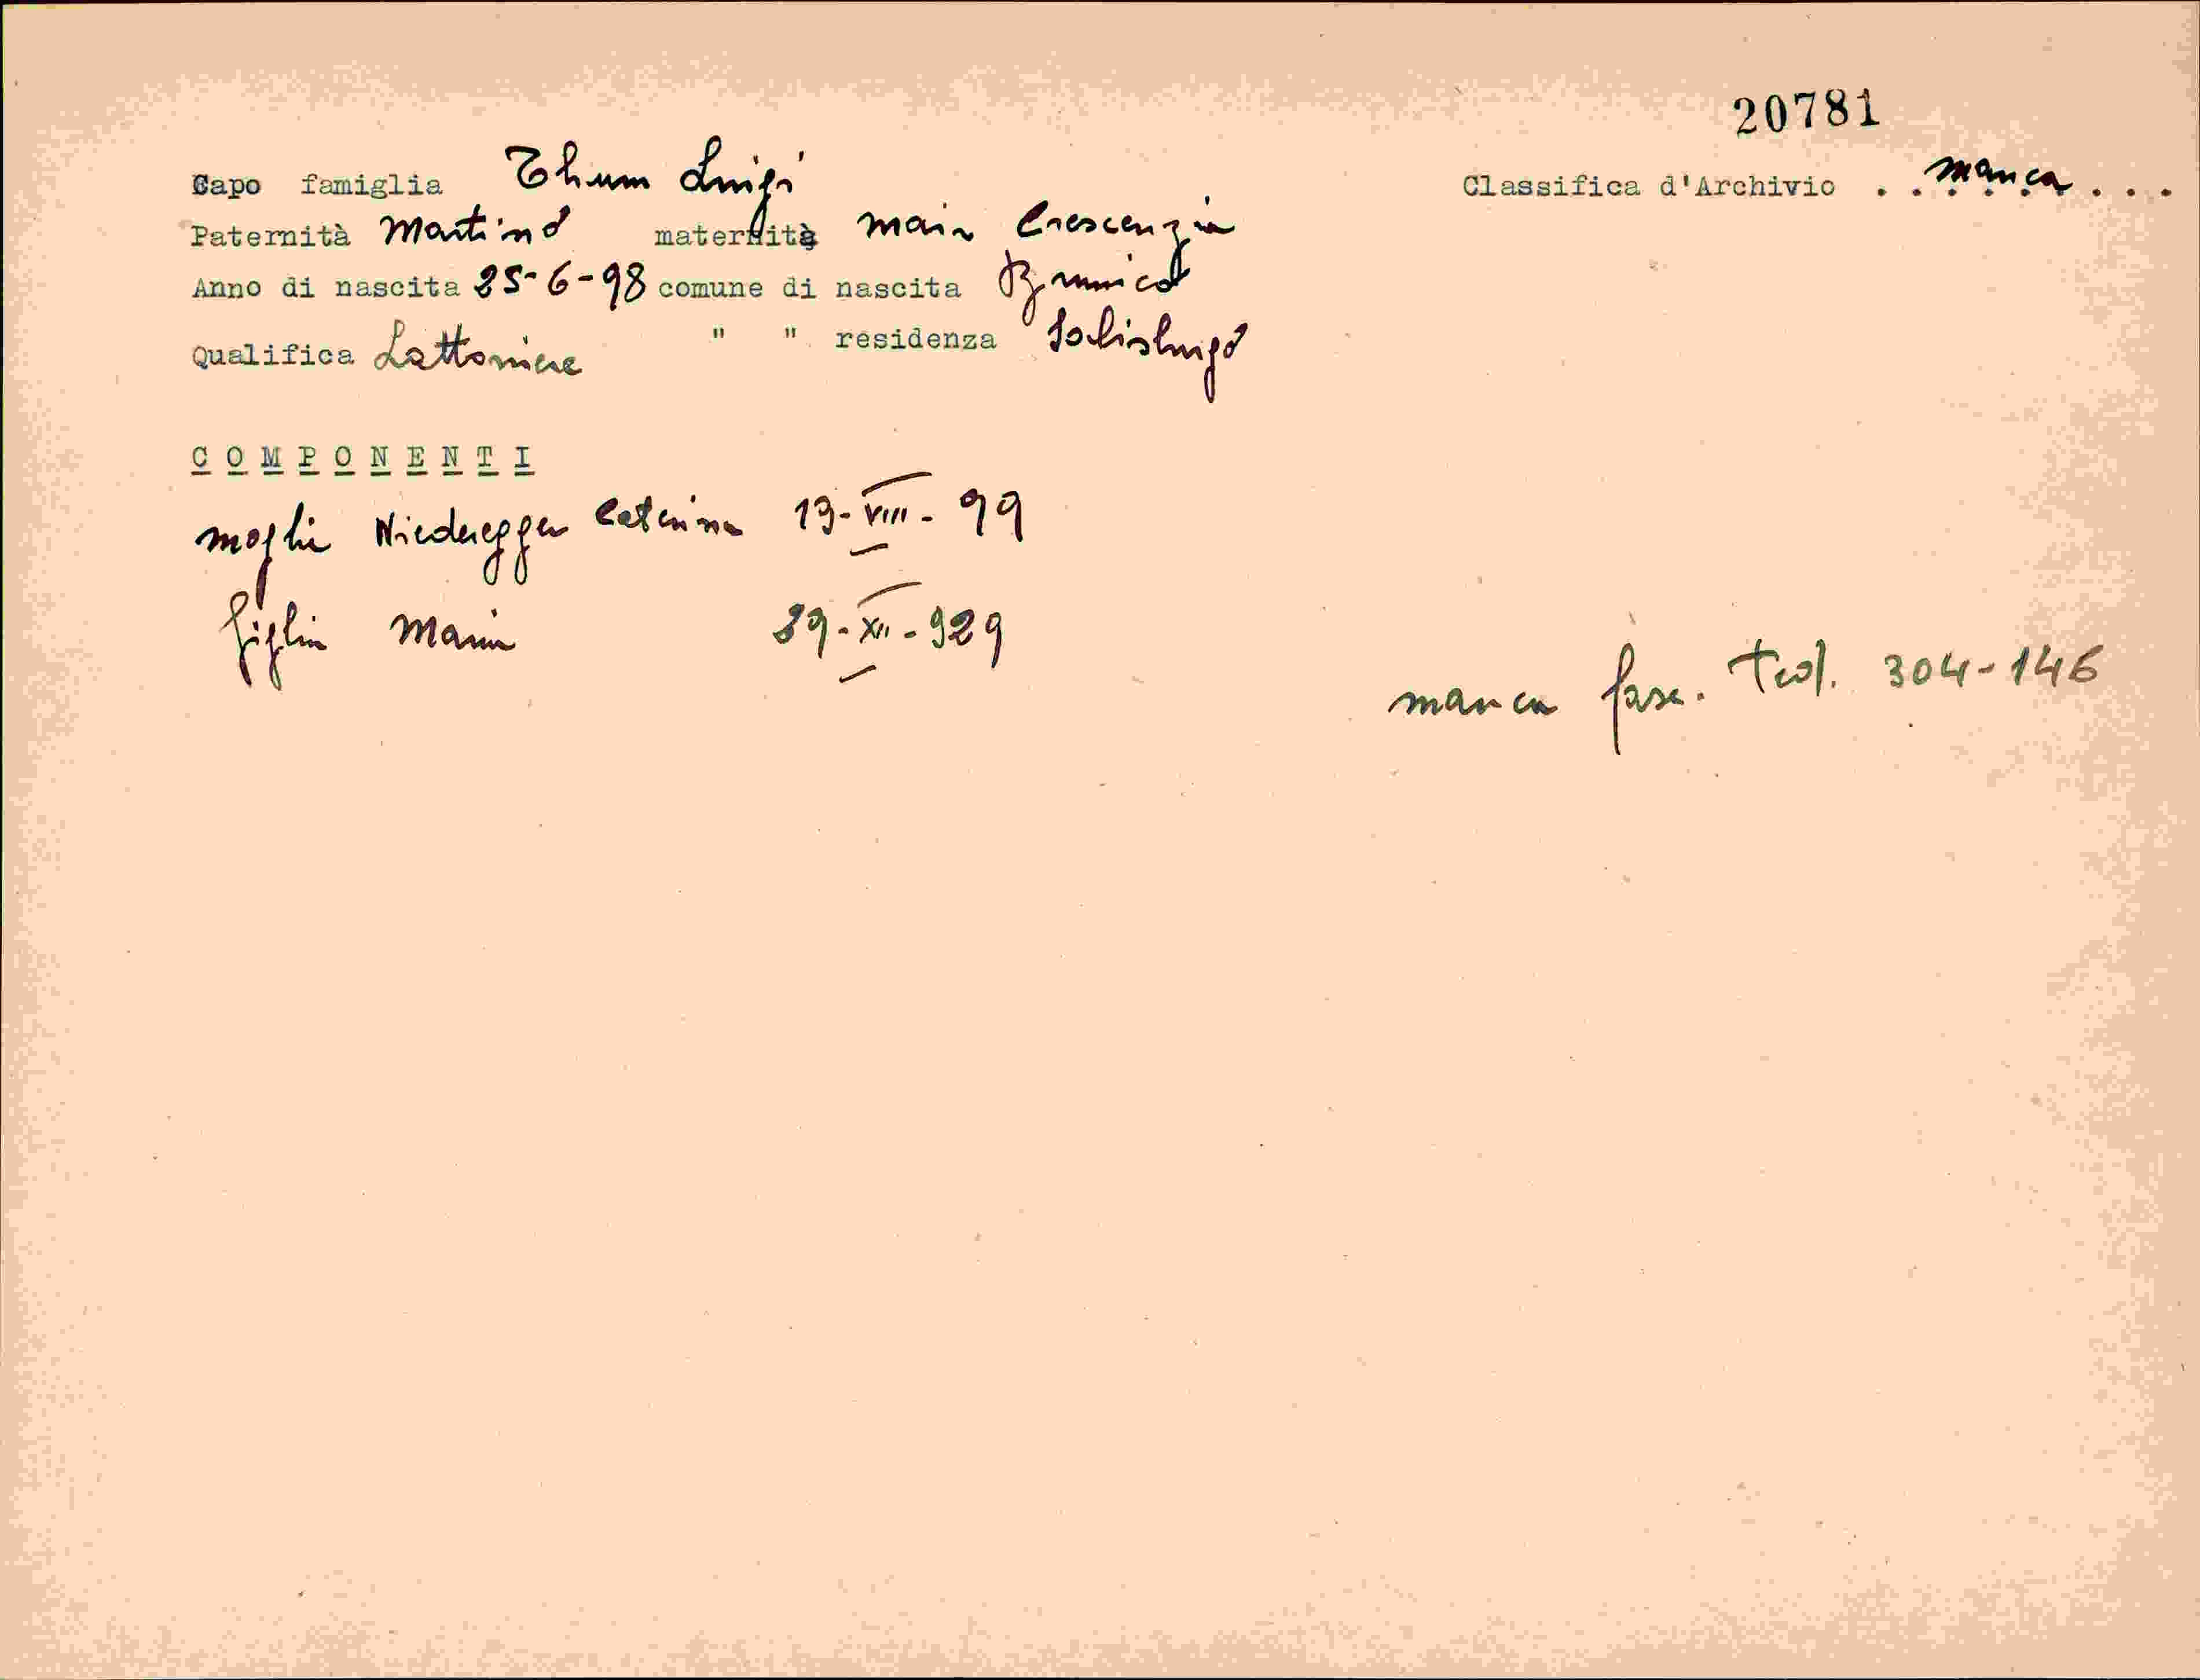 20781
Capo famiglia Thum Luigi
Classifica d'Archivio . . manca . . .
Paternità Martino maternità Mair Crescenzia
Anno di nascita 25-6-98 comune di nascita Brunico
Qualifica Lattoniere " " residenza Salisburgo
COMPONENTI
moglie Niederegger Caterina 13-VIII-99
figlia Maria 29-XII-929
manca fasc. Ted. 304-146